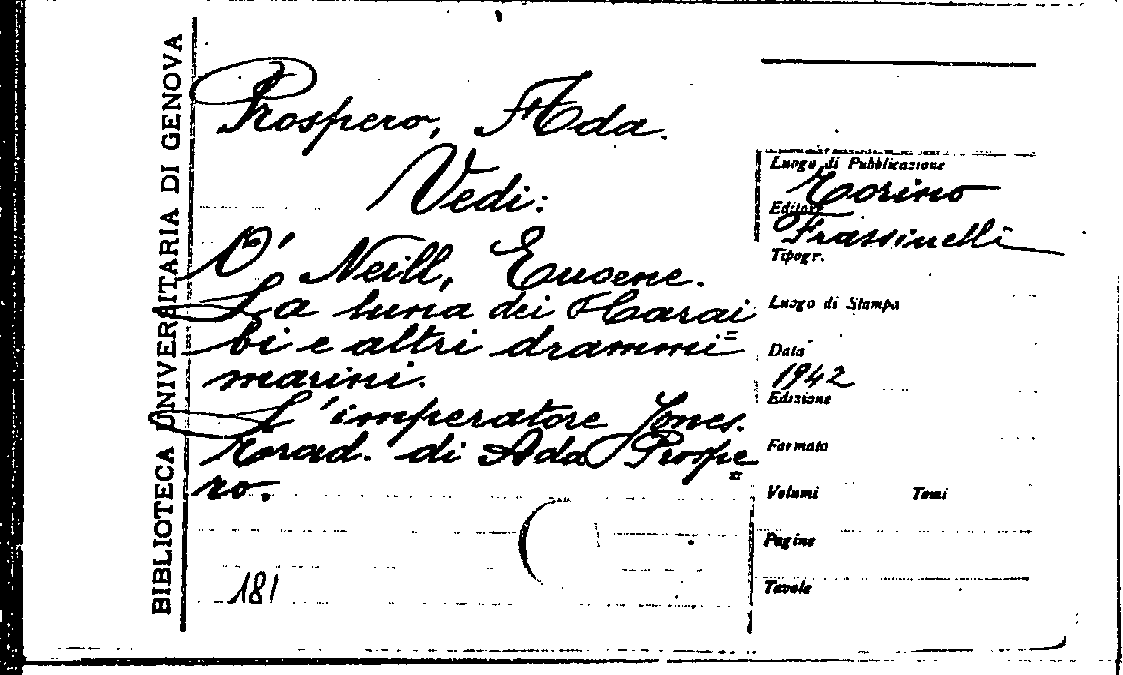 BIBLIOTECA UNIVERSITARIA DI GENOVA
Prospero, Ada.
Vedi:
O' Neill, Eugene.
La luna dei Carai=
bi e altri drammi
marini.
L'imperatore Jones.
Trad. di Ada Prospe=
ro.
181
Luogo di Pubblicazione
Torino
Editore
Frassinelli
Tipogr.
Luogo di Stampa
Data
1942
Edizione
Formato
Volumi Tomi
Pagine
Tavole